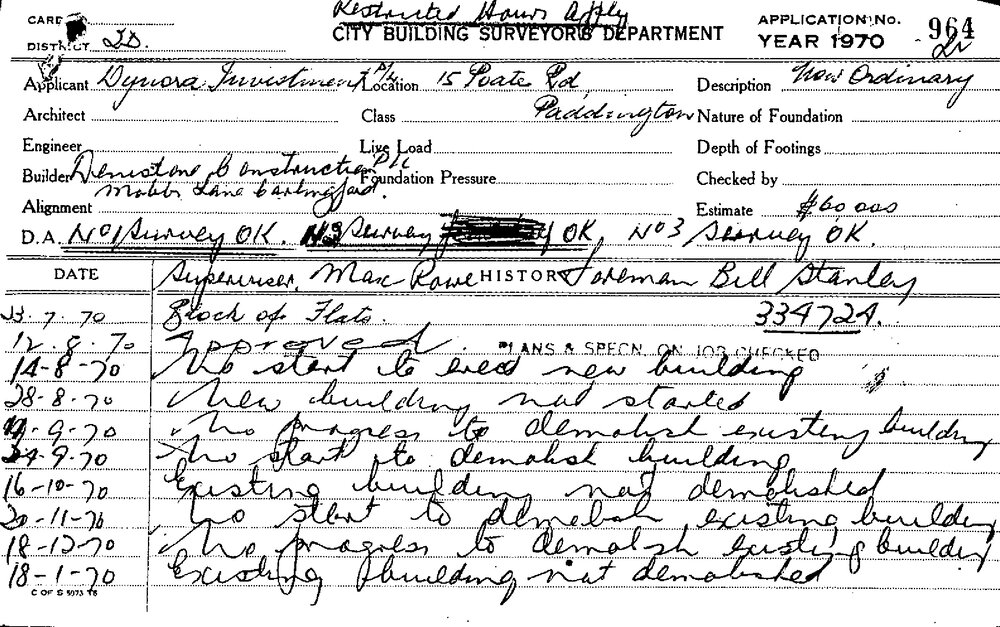 Restricted Hours Apply
CARD
CITY BUILDING SURVEYOR'S DEPARTMENT
APPLICATION No. 964
DISTRICT 2D.
YEAR 1970
Applicant Dynora Investment P/L Location 15 Poate Rd, Description Non Ordinary
Architect Class Paddington Nature of Foundation
Engineer Live Load Depth of Footings
Builder Denistone Construction P/L Foundation Pressure Checked by
Mobbs Lane Carlingford.
Alignment Estimate $60 000
D.A. No 1 Survey OK. No 2 Survey OK, No 3 Survey OK.
DATE HISTORY
Supervisor, Max Rowe Foreman Bill Stanley
23.7.70 Block of Flats. 334724.
12.8.70 Approved. PLANS & SPECN. ON JOB CHECKED
14-8-70 No start to erect new building
28-8-70 New building not started
-9-70 No progress to demolish existing building
24-9-70 No start to demolish building
16-10-70 Existing building not demolished
20-11-70 No start to demolish existing building
18-12-70 No progress to demolish existing building
18-1-70 Existing building not demolished
C OF S 5973 TS